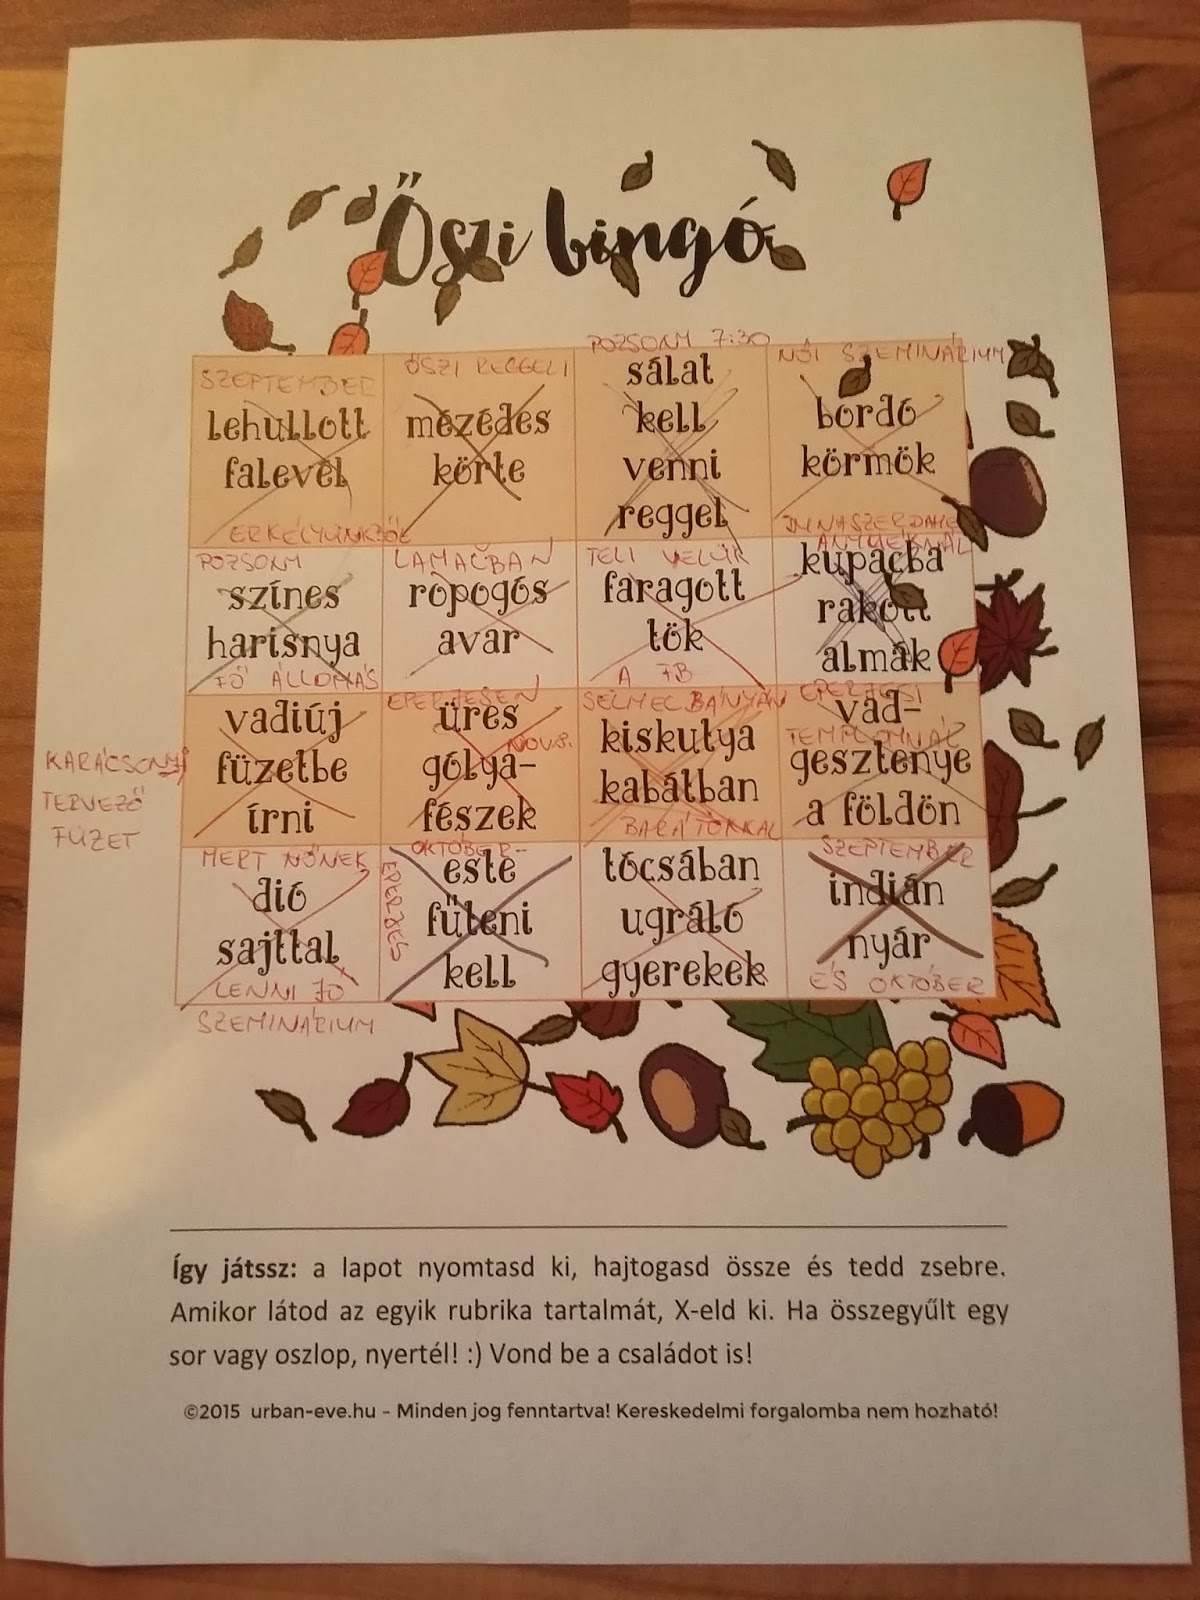 Őszi bingó
SZEPTEMBER
lehullott
falevél
ERKÉLYÜNKBŐL
ŐSZI REGGELI
mézédes
körte
POZSONY 7:30
sálat
kell
venni
reggel
NŐI SZEMINÁRIUM
bordó
körmök
POZSONY
színes
harisnya
FŐ ÁLLOMÁS
LAMAČBAN
ropogós
avar
TELI VELÜK
faragott
tök
A FB
ANYUÉKNÁL
kupacba
rakott
almák
KARÁCSONYI
TERVEZŐ
FÜZET
vadiúj
füzetbe
írni
EPERJESEN
üres
NOV.8.
gólya-
fészek
SELMECBÁNYÁN
kiskutya
kabátban
BARÁTOKKAL
EPERJESI
vad-
TEMPLOMNÁL
gesztenye
a földön
MERT NŐNEK
dió
sajttal
LENNI JÓ
SZEMINÁRIUM
OKTÓBER--
EPERJES
este
fűteni
kell
tócsában
ugráló
gyerekek
SZEPTEMBER
indián
nyár
ÉS OKTÓBER
Így játssz: a lapot nyomtasd ki, hajtogasd össze és tedd zsebre.
Amikor látod az egyik rubrika tartalmát, X-eld ki. Ha összegyűlt egy
sor vagy oszlop, nyertél! :) Vond be a családot is!
©2015 urban-eve.hu – Minden jog fenntartva! Kereskedelmi forgalomba nem hozható!